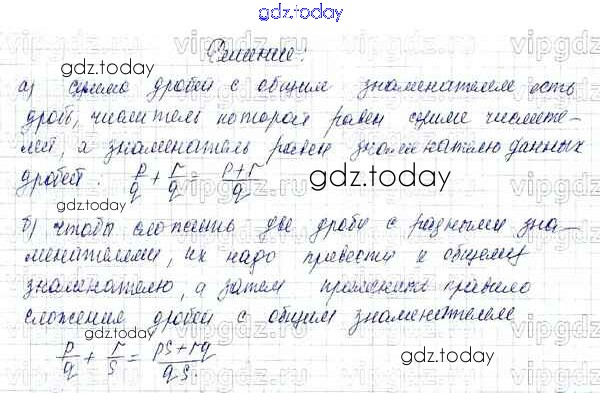 gdz.today
Решение:
gdz.today
а) сумма дробей с общим знаменателем есть
дробь, числитель которой равен сумме числите-
лей, а знаменатель равен знаменателю данных
дробей: p/q + r/q = p+r/q
gdz.today
gdz.today
б) чтобы сложить две дроби с разными зна-
менателями, их надо привести к общему
знаменателю, а затем применить правило
сложения дробей с общим знаменателем
gdz.today
p/q + r/s = ps+rq/qs.
gdz.today